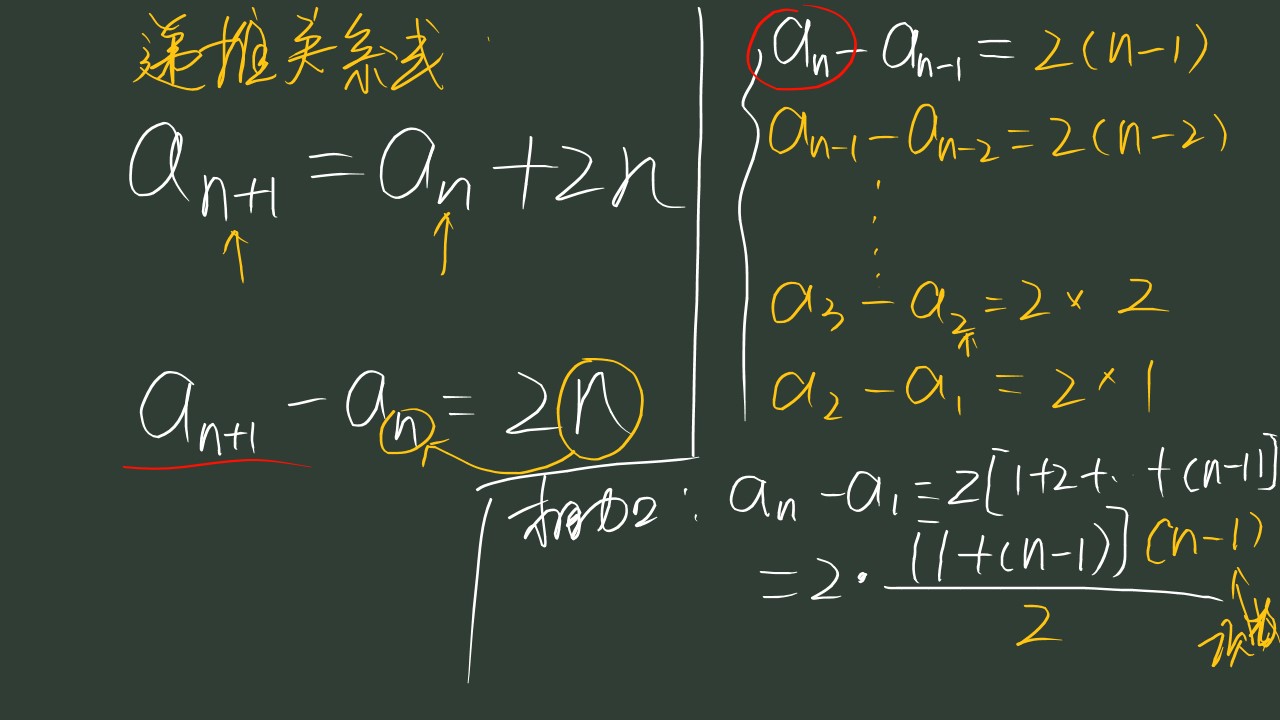 递推关系式
aₙ₊₁ = aₙ + 2n
aₙ₊₁ - aₙ = 2n
aₙ - aₙ₋₁ = 2(n-1)
aₙ₋₁ - aₙ₋₂ = 2(n-2)
⋮
a₃ - a₂ = 2 × 2
a₂ - a₁ = 2 × 1
相加 : aₙ - a₁ = 2[1+2+··+(n-1)]
= 2 · [1+(n-1)](n-1) / 2
项数